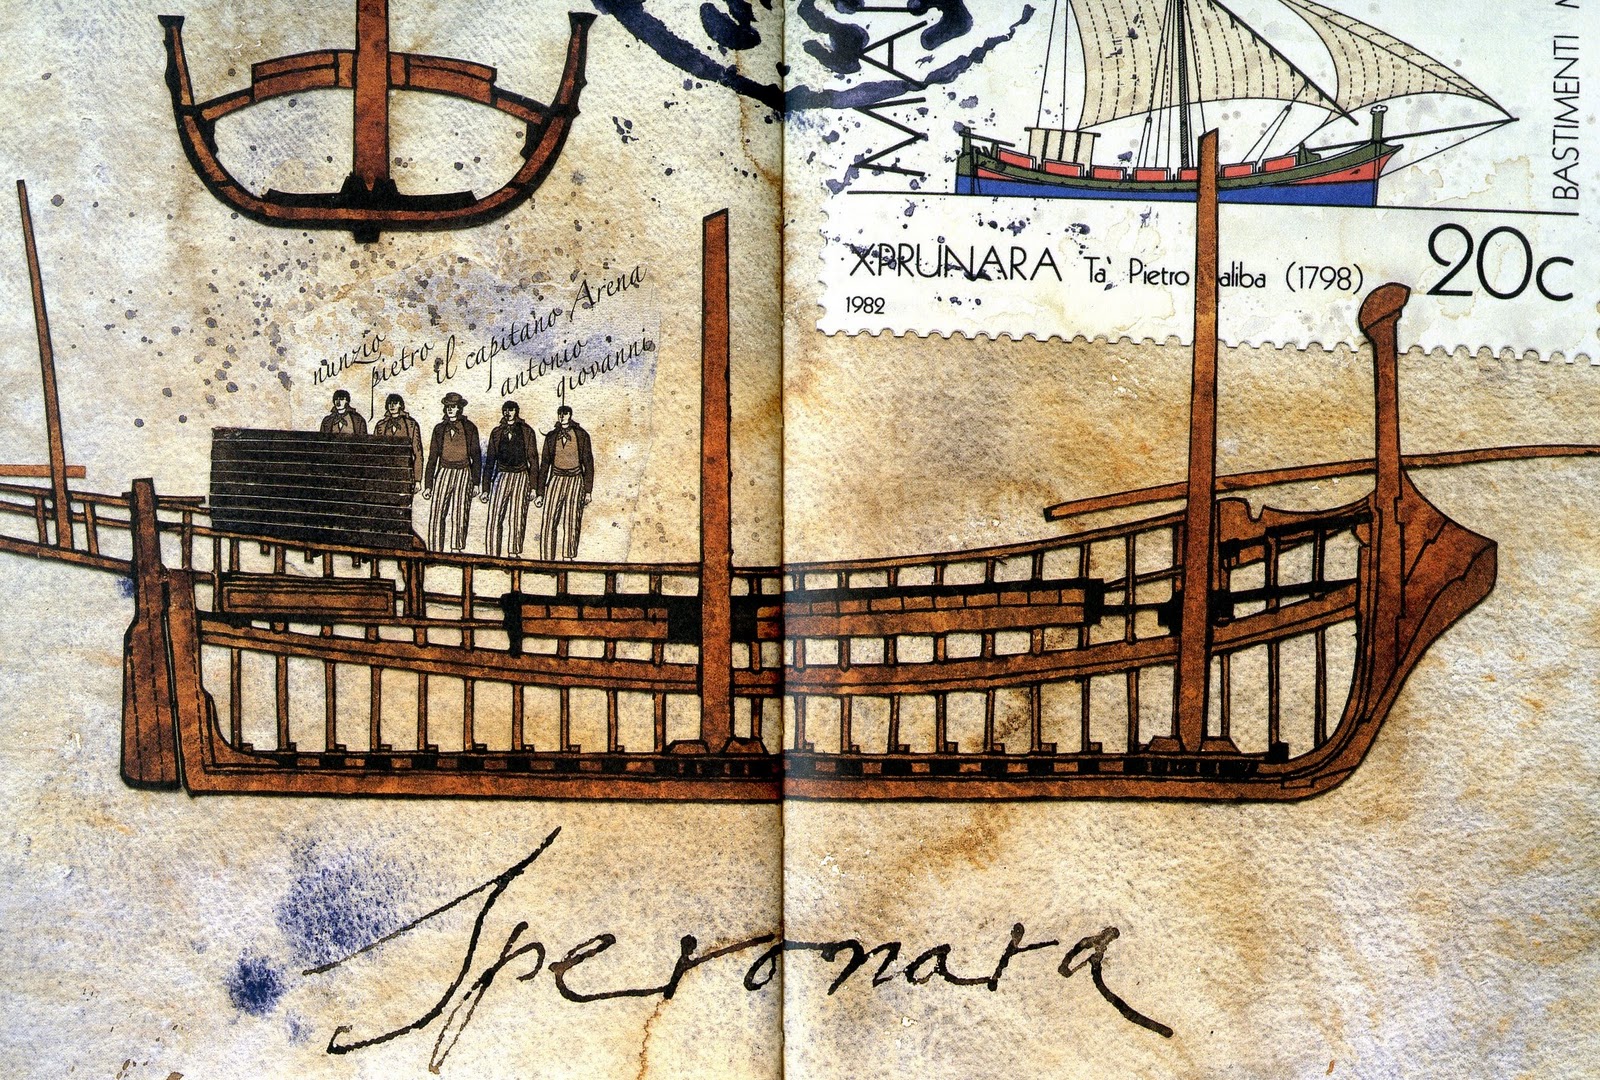 MA
BASTIMENTI
XPRUNARA Ta' Pietro aliba (1798)
20c
1982
nunzio
pietro
il capitano Arena
antonio
giovanni
Speronara